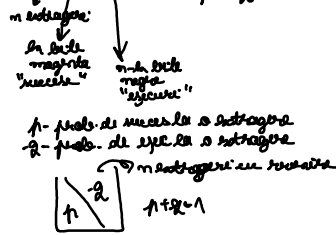 n extrageri
k bile
magenta
"succese"
n-k bile
negre
"eșecuri"
p- prob. de succes la o extragere
q- prob. de eșec la o extragere
n extrageri cu revenire
p
q
p+q=1